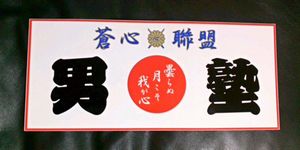 蒼心 聯盟
男 塾
曇らぬ
月こそ
我が心